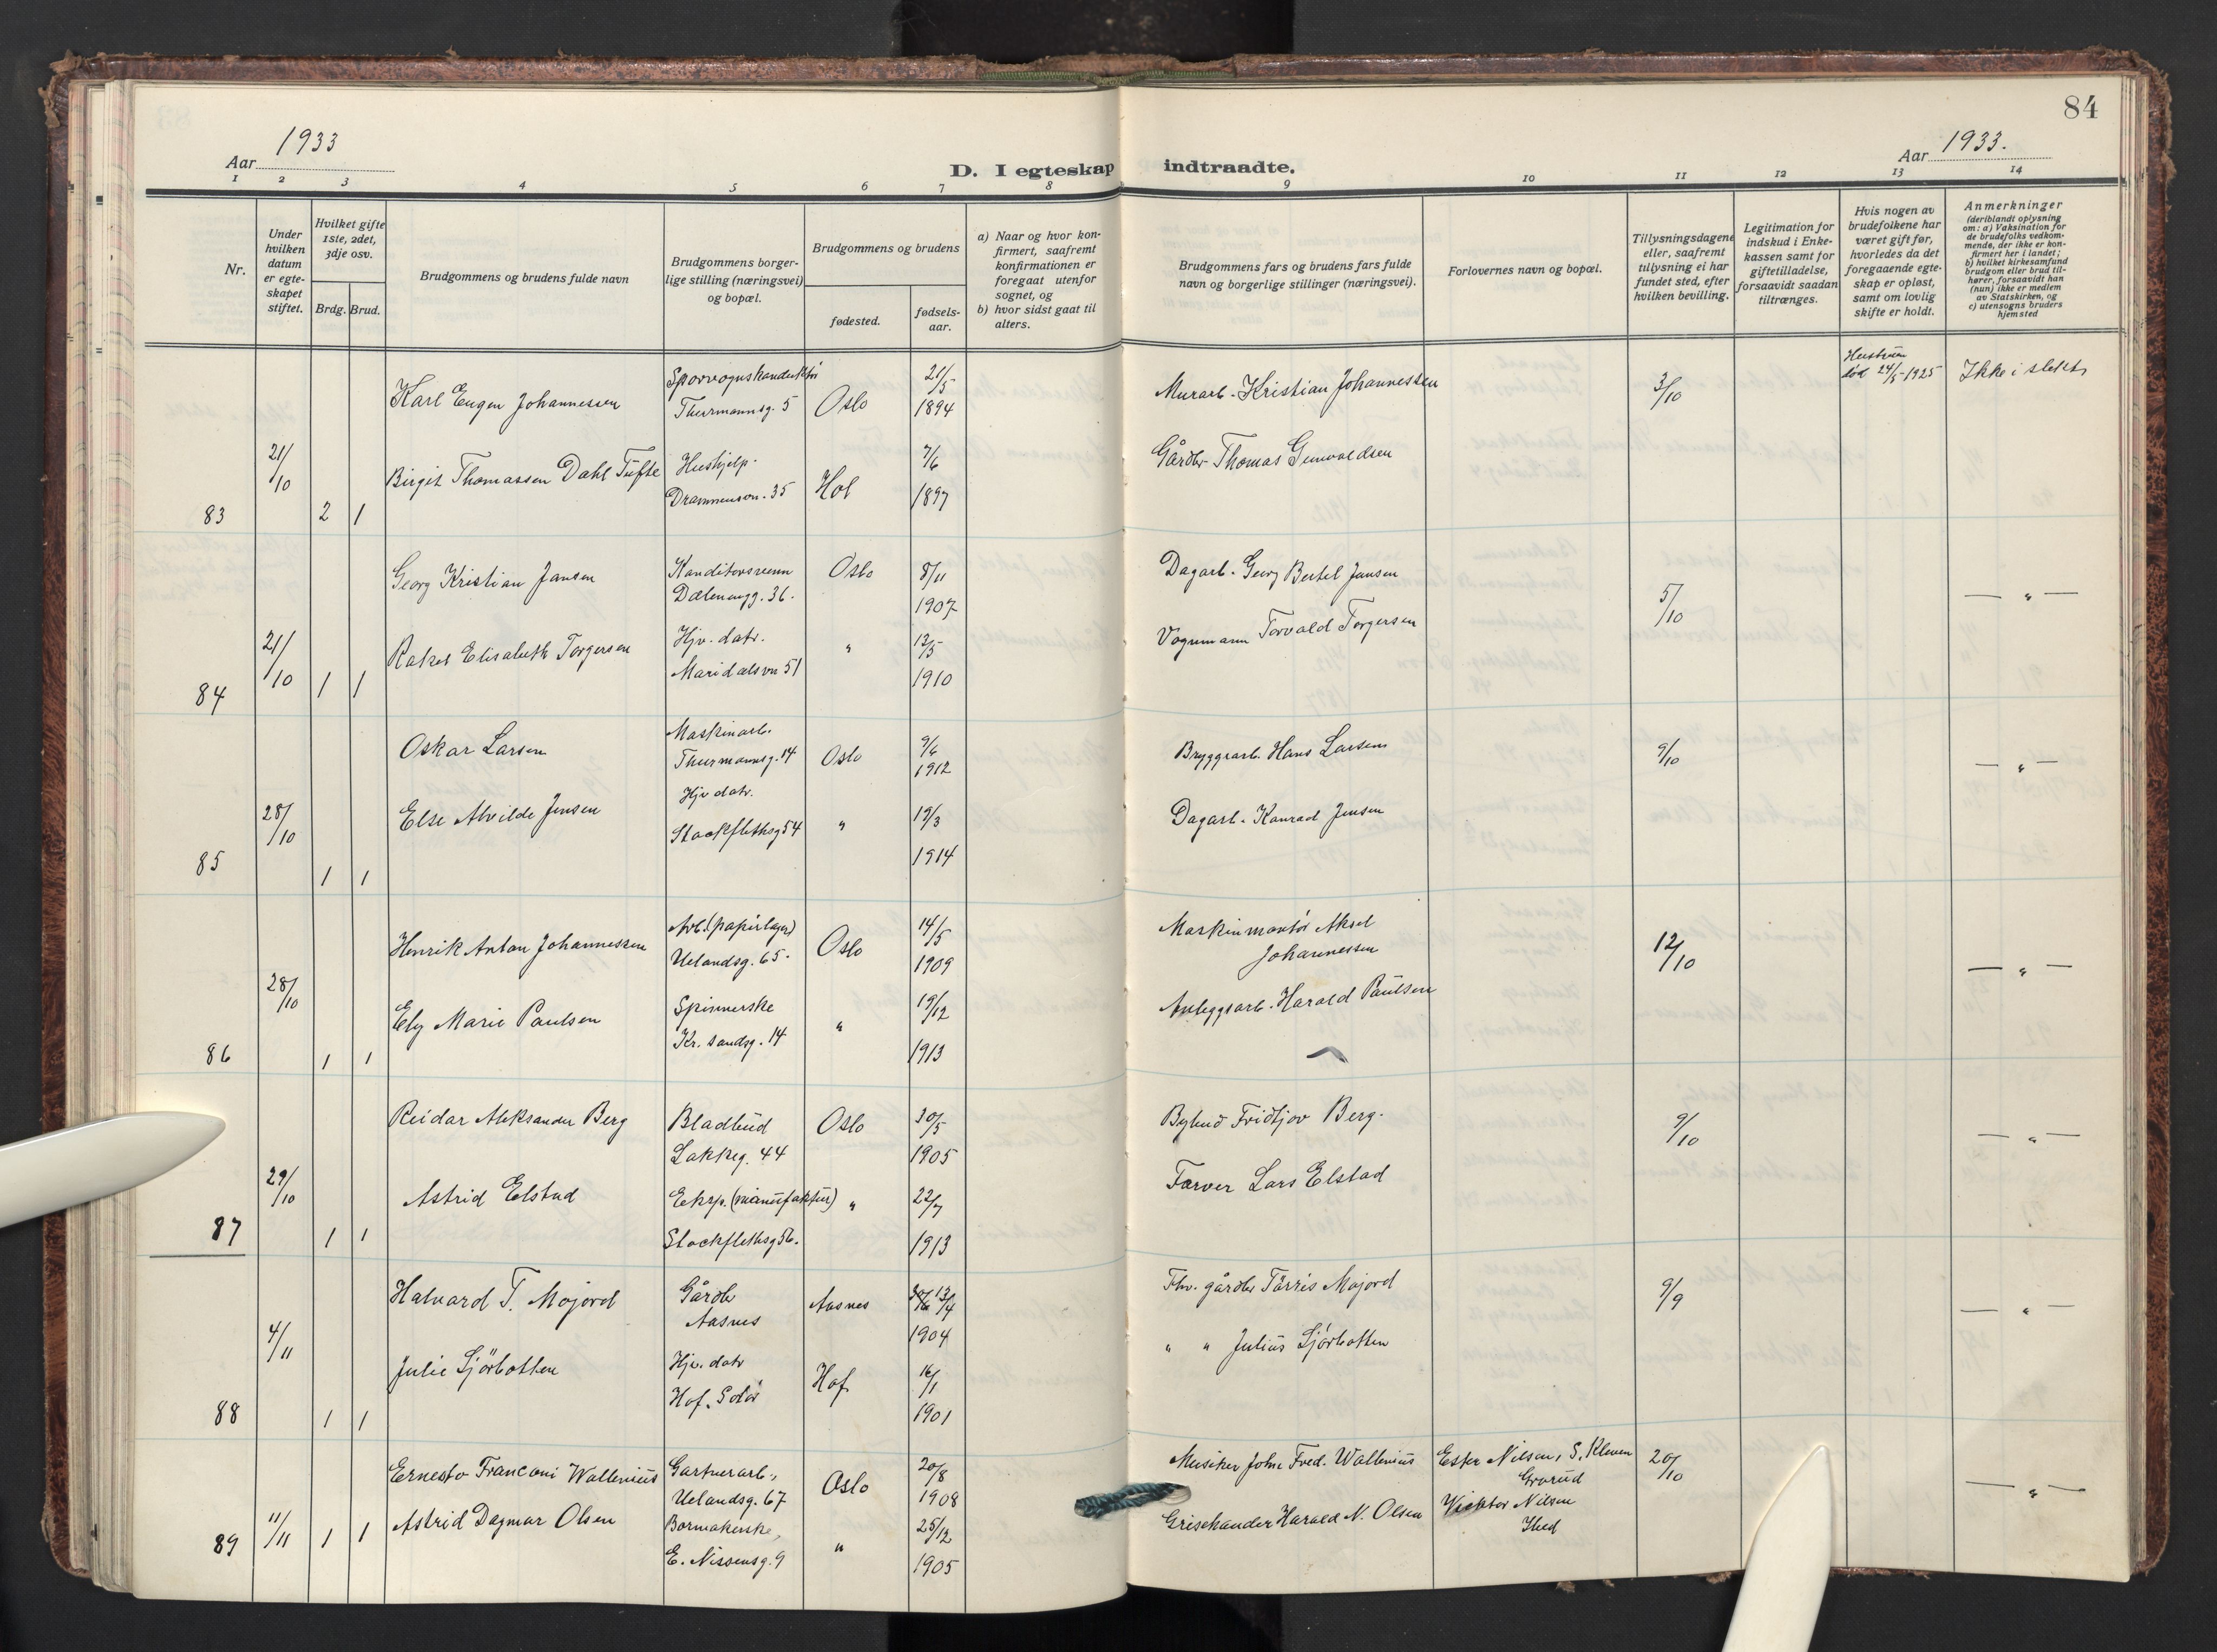 84
Aar 1933
Aar 1933.
D. I egteskap indtraadte.
1 2 3 4 5 6 7 8 9 10 11 12 13 14
Nr.
Under hvilken datum er egteskapet stiftet.
Hvilket gifte 1ste, 2det, 3dje osv.
Brdg. Brud.
Brudgommens og brudens fulde navn
Brudgommens borgerlige stilling (næringsvei) og bopæl.
Brudgommens og brudens
fødested.
fødselsaar.
a) Naar og hvor konfirmert, saafremt konfirmationen er foregaat utenfor sognet, og
b) hvor sidst gaat til alters.
Brudgommens fars og brudens fars fulde navn og borgerlige stillinger (næringsvei).
Forlovernes navn og bopæl.
Tillysningsdagene eller, saafremt tillysning ei har fundet sted, efter hvilken bevilling.
Legitimation for indskud i Enkekassen samt for giftetilladelse, forsaavidt saadan tiltrænges.
Hvis nogen av brudefolkene har været gift før, hvorledes da det foregaaende egteskap er opløst, samt om lovlig skifte er holdt.
Anmerkninger
(deriblandt oplysning om: a) Vaksination for de brudefolks vedkommende, der ikke er konfirmert her i landet; b) hvilket kirkesamfund brudgom eller brud tilhører, forsaavidt han (hun) ikke er medlem av Statskirken, og c) utensogns bruders hjemsted
Karl Eugen Johannessen Sporvognskonduktør Thurmannsg. 5 Oslo 21/5 1894 Murarb. Kristian Johannessen 3/10 Hustruen død 24/5-1925 Ikke i slekt
83 21/10 2 1 Birgit Thomassen Dahl Tufte Hushjelp. Drammensvn. 35 Hol 7/6 1897 Gårdbr Thomas Gunvaldsen
Georg Kristian Jansen Konditorsvenn Dælenengg. 36. Oslo 8/11 1907 Dagarb. Georg Bertel Jansen 5/10 — " —
84 21/10 1 1 Rakel Elisabeth Torgersen Hjv. datr. Maridalsvn 51 " 12/5 1910 Vognmann Torvald Torgersen
Oskar Larsen Maskinarb. Thurmannsg. 14 Oslo 9/6 1912 Bryggearb. Hans Larsen 9/10 — " —
85 28/10 1 1 Else Alvilde Jensen Hjv datr. Stockflethsg 54 " 19/3 1914 Dagarb. Konrad Jensen
Henrik Anton Johannessen Arb. (papirlager) Uelandsg. 65. Oslo 14/5 1909 Maskinmontør Aksel Johannessen 12/10 — " —
86 28/10 1 1 Ely Marie Paulsen Spinnerske Kr. sandsg. 14 " 19/12 1913 Anleggsarb. Harald Paulsen
Reidar Aleksander Berg Bladbud Lakkeg. 44 Oslo 30/5 1905 Bybud Fridtjov Berg. 9/10 — " —
87 29/10 1 1 Astrid Elstad Eksp. (manufaktur) Stockflethsg 56. " 22/7 1913 Farver Lars Elstad
Halvard T. Mojord Gårdbr Aasnes Aasnes 13/4 1904 Fhv. gårdbr Tarris Mojord 9/9 — " —
88 4/11 1 1 Julie Sjørbotten Hjv. datr Hof, Solør Hof 16/1 1901 " " Julius Sjørbotten
Ernesto Franconi Wallenius Gartnerarb., Uelandsg. 67 Oslo 20/8 1908 Musiker John Fred. Wallenius Ester Nilsen, S. Kleven Grorud 20/10 — " —
89 11/11 1 1 Astrid Dagmar Olsen E. Nissensg. 9 " 25/12 1905 Grisehandler Harald N. Olsen Vicktor Nilsen Ibid